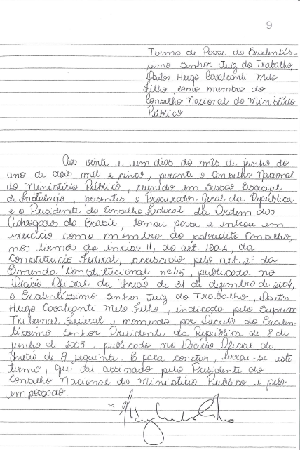 9
Termo de Posse do Excelentís-
simo Senhor Juiz do Trabalho,
Doutor Hugo Cavalcanti Melo
Filho, como membro do
Conselho Nacional do Ministério
Público
Aos vinte e um dias do mês de junho do
ano de dois mil e cinco, perante o Conselho Nacional
do Ministério Público, reunido em Sessão Especial
de Instalação, presentes o Procurador-Geral da República
e o Presidente do Conselho Federal da Ordem dos
Advogados do Brasil, tomou posse e entrou em
exercício como membro do referido Conselho,
nos termos do inciso do art. 130-A da
Constituição Federal, pelo art. da
Emenda Constitucional nº 45, publicada no
Diário Oficial da União de 31 de dezembro de 2004,
o Excelentíssimo Senhor Juiz do Trabalho, Doutor
Hugo Cavalcanti Melo Filho, indicado pelo Supremo
Tribunal Federal e nomeado por Decreto do Excelen-
tíssimo Senhor Presidente da República de 8 de
junho de 2005, publicado no Diário Oficial da
União de 9 seguinte. E para constar, lavrou-se este
termo, que vai assinado pelo Presidente do
Conselho Nacional do Ministério Público e pelo
empossado